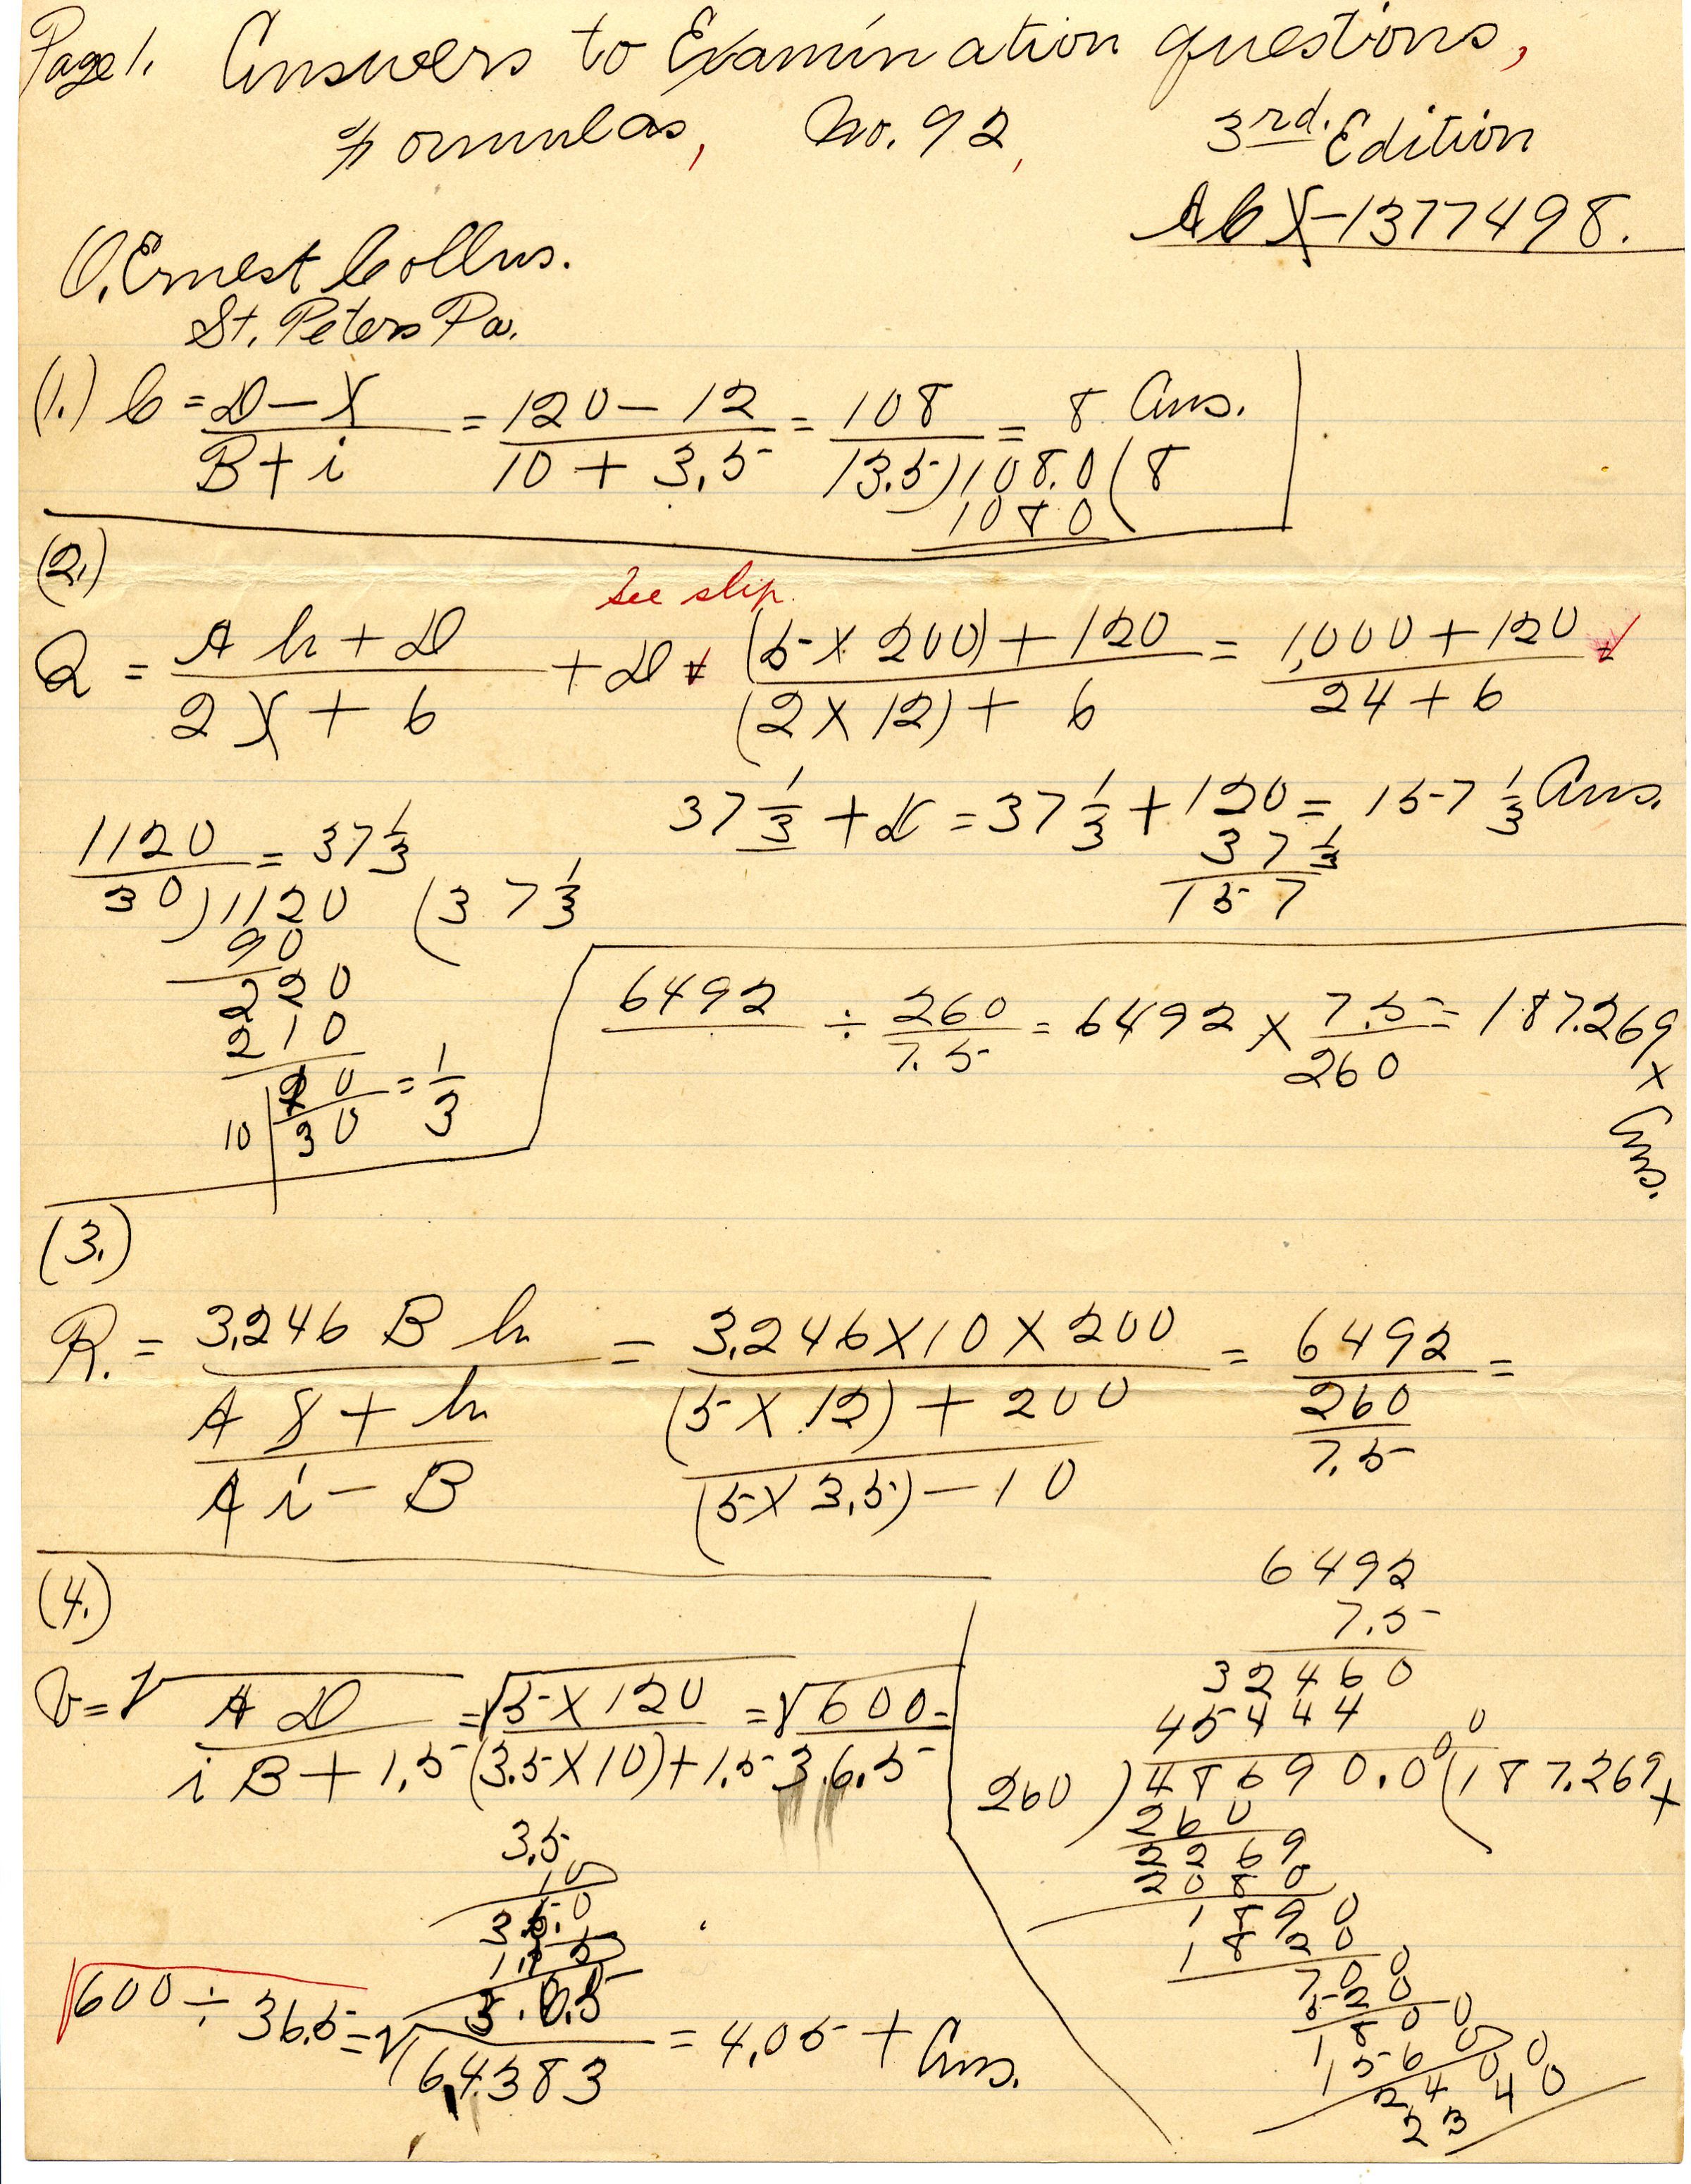 Page 1. Answers to Examination questions,
Formulas, No. 92, 3rd. Edition
A C X-1377498.
O. Ernest Collins.
St. Peters Pa.
(1.) C = D - X / B + i = 120 - 12 / 10 + 3.5 = 108 / 13.5 = 8 Ans.
13.5)108.0(8
1080
(2.)
See slip.
Q = A h + D / 2 X + 6 + D = (5 X 200) + 120 / (2 X 12) + 6 = 1,000 + 120 / 24 + 6
37 1/3 + D = 37 1/3 + 120 = 157 1/3 Ans.
37 1/3
157
1120 / 30 = 37 1/3
30)1120(37 1/3
90
220
210
10 | 20 / 30 = 1 / 3
6492 ÷ 260 / 7.5 = 6492 X 7.5 / 260 = 187.269 + Ans.
(3.)
R. = 3.246 B h / A 8 + h / A i - B = 3.246 X 10 X 200 / (5 X 12) + 200 / (5 X 3.5) - 10 = 6492 / 260 / 7.5 =
(4.)
V = √ A D / i B + 1.5 = √ 5 X 120 / (3.5 X 10) + 1.5 = √ 600 / 36.5 =
3.5
10
35.0
1.5
√600 ÷ 36.5 = √16.4383 = 4.05 + Ans.
6492
7.5
32460
45444
260)48690.000(187.269+
260
2269
2080
1890
1820
700
520
1800
1560
2400
2340